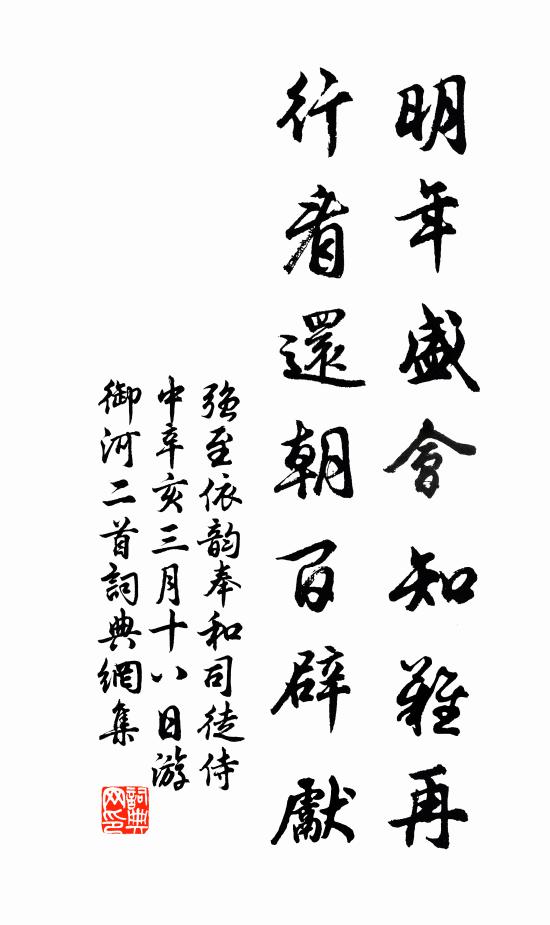 明年盛會知難再
行看還朝百辟獻
強至依韵奉和司徒侍
中辛亥三月十八日游
御河二首詞典網集
詞典
网印